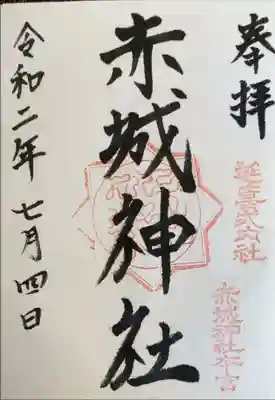 奉拝
赤城神社
令和二年七月四日
延喜式内社
赤城神社本宮